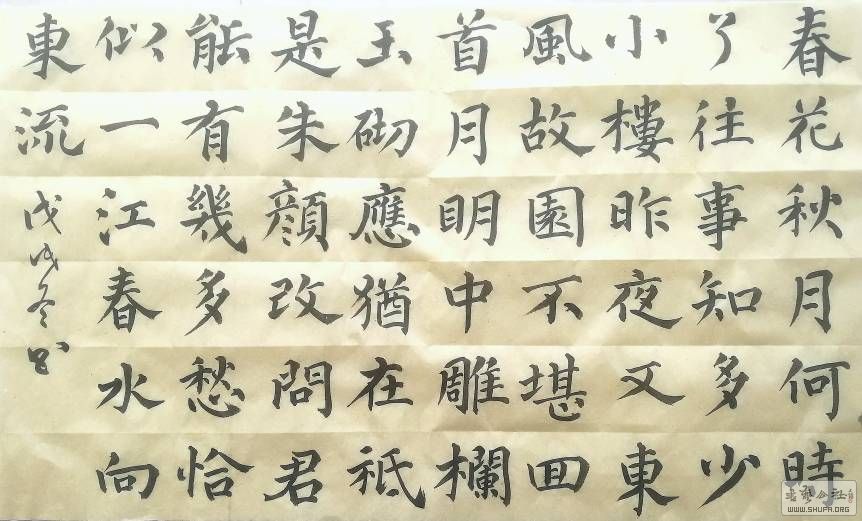 春花秋月何時
了往事知多少
小樓昨夜又東
風故園不堪囬
首月明中雕欄
玉砌應猶在祗
是朱顔改問君
能有幾多愁恰
似一江春水向
東流
戊戌冬书
書藝公社
WWW.SHUFA.ORG